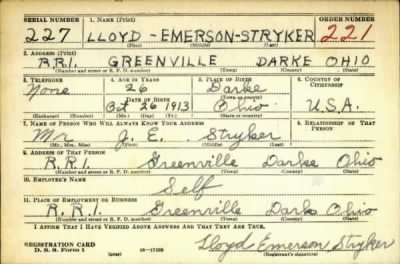 SERIAL NUMBER 1. NAME (Print) ORDER NUMBER
227 LLOYD - EMERSON - STRYKER 221
(First) (Middle) (Last)
2. ADDRESS (Print)
R.R.1. GREENVILLE DARKE OHIO
(Number and street or R. F. D. number) (Town) (County) (State)
3. TELEPHONE 4. AGE IN YEARS 5. PLACE OF BIRTH 6. COUNTRY OF CITIZENSHIP
None 26 Darke
DATE OF BIRTH
Oct 26 1913 Ohio U.S.A.
(Exchange) (Number) (Mo.) (Day) (Yr.) (State or country)
7. NAME OF PERSON WHO WILL ALWAYS KNOW YOUR ADDRESS 8. RELATIONSHIP OF THAT PERSON
Mr J. E. Stryker
(Mr., Mrs., Miss) (First) (Middle) (Last)
9. ADDRESS OF THAT PERSON
R.R.1. Greenville Darke Ohio
(Number and street or R. F. D. number) (Town) (County) (State)
10. EMPLOYER'S NAME
Self
11. PLACE OF EMPLOYMENT OR BUSINESS
R.R.1. Greenville Dark Ohio
(Number and street or R. F. D. number) (Town) (County) (State)
I AFFIRM THAT I HAVE VERIFIED ABOVE ANSWERS AND THAT THEY ARE TRUE.
REGISTRATION CARD Lloyd Emerson Stryker
D. S. S. Form 1 (Registrant's signature)